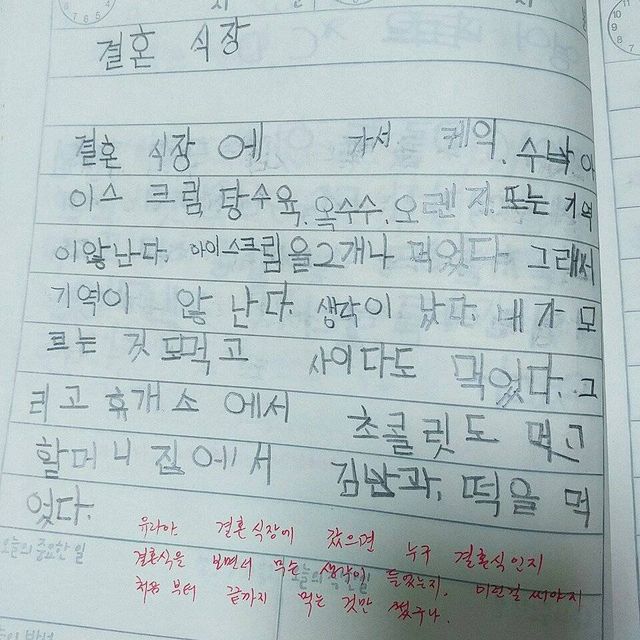 결혼 식장
결혼 식장 에 가서 케익, 수박, 아
이스 크림, 탕수육, 옥수수, 오렌지, 또는 기역
이않난다. 아이스크림을 2개나 먹었다. 그래서
기역이 않 난다. 생각이 났다. 내가 모
르는 것 도먹고 사이다도 먹었다. 그
리고 휴개소 에서 초콜릿도 먹고
할머니 집에서 김밥과, 떡을 먹
었다.
유라야. 결혼식장에 갔으면 누구 결혼식인지
결혼식을 보면서 무슨 생각이 들었는지. 이런걸 써야지
처음 부터 끝까지 먹는 것만 썼구나.
오늘의 중요한 일